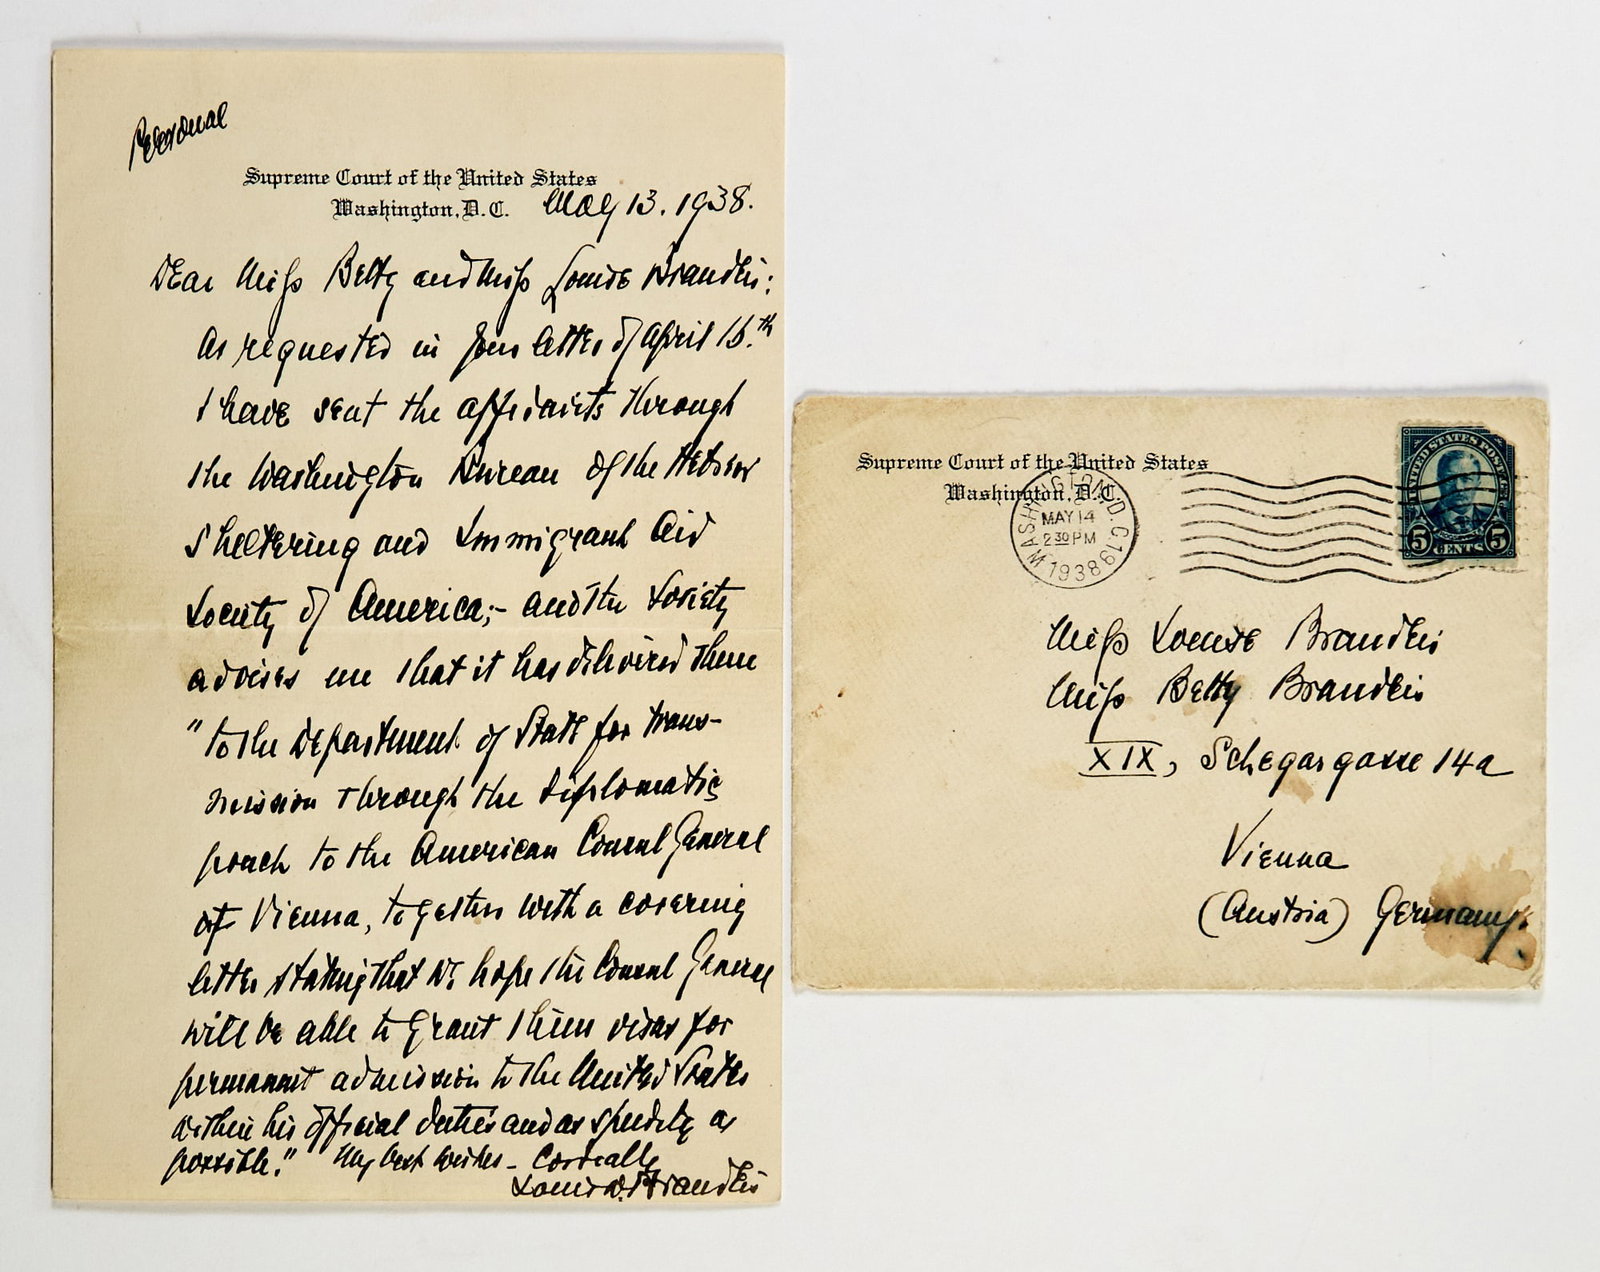 Personal
Supreme Court of the United States
Washington, D. C. May 13. 1938.
Dear Miss Betty and Miss Louise Brandeis:
As requested in your letter of April 15.th
I have sent the affidavits through
the Washington Bureau of the Hebrew
Sheltering and Immigrant Aid
Society of America;- and the Society
advises me that it has delivered them
"to the Department of State for trans-
mission through the diplomatic
pouch to the American Consul General
at Vienna, together with a covering
letter stating that we hope the Consul General
will be able to grant them visas for
permanent admission to the United States
within his official duties and as speedily as
possible." My best wishes - Cordially
Louis D. Brandeis
Supreme Court of the United States
Washington, D. C.
WASHINGTON, D. C. 19
MAY 14
2 30 PM
1938
UNITED STATES POSTAGE
5 CENTS 5
Miss Louise Brandeis
Miss Betty Brandeis
XIX, Schegargasse 14a
Vienna
(Austria) Germany.